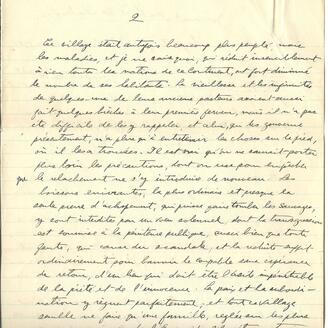 2
Ce village était autrefois beaucoup plus peuplé mais
les maladies, et je ne sais quoi, qui réduit insensiblement
à rien toutes les nations de ce Continent, ont fort diminué
le nombre de ses habitants. La vieillesse et les infirmités
de quelques-uns de leurs anciens pasteurs avaient aussi
fait quelques brèches à leur première ferveur, mais il n'a pas
été difficile de les y rappeler et celui, qui les gouverne
présentement, n'a plus qu'à entretenir les choses sur le pied,
où il les a trouvées. Il est vrai qu'on ne saurait porter
plus loin les précautions, dont on use pour empêcher
que le relachement ne s'y introduise de nouveau. Les
boissons enivrantes, la plus ordinaire et presque la
seule pierre d'achoppement, qui puisse faire tomber les Sauvages,
y sont interdites par un vœu solennel, dont la transgression
est soumise à la pénitence publique, aussi bien que toute
faute, qui cause du scandale, et la rechute suffit
ordinairement pour bannir le coupable sans espérance
de retour, d'un lieu qui doit être l'asile impénétrable
de la piété et de l'innocence. La paix et la subordi-
nation y règnent parfaitement; et tout ce village
semble ne faire qu'une famille, réglée sur les plus